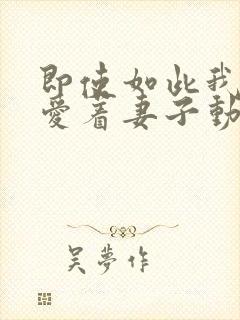 即使如此我
爱着妻子動
吴夢作